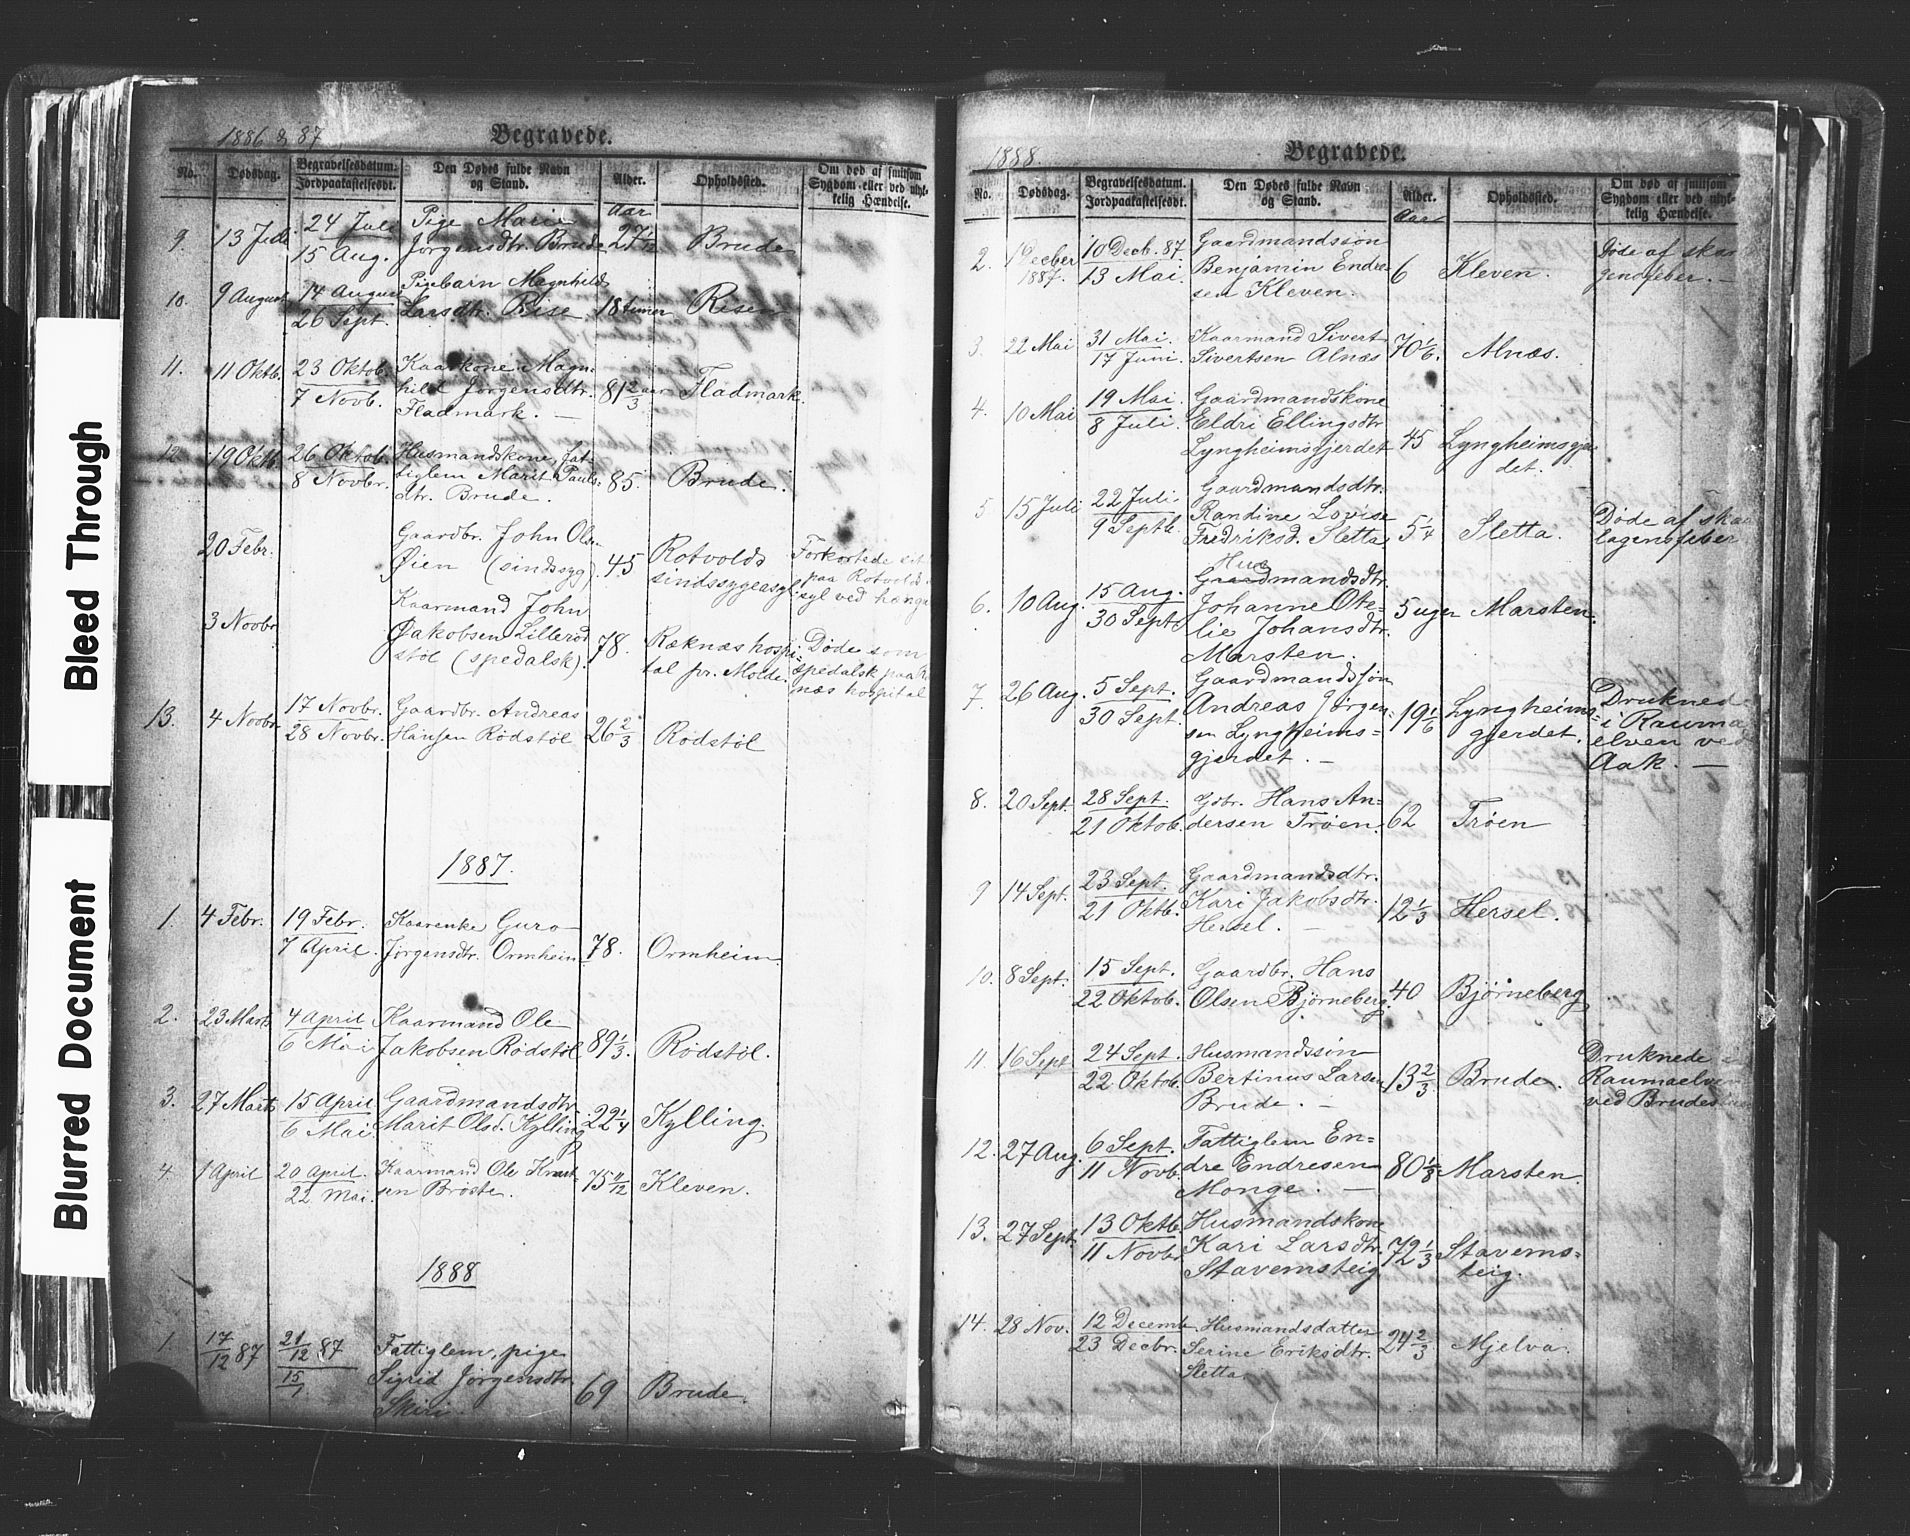 Bleed Through
Blurred Document
1886 & 87
Begravede.
No.
Dødsdag.
Begravelsesdatum.
Jordpaakastelsesdt.
Den Dødes fulde Navn
og Stand.
Alder.
Opholdssted.
Om død af smitsom
Sygdom eller ved ulyk-
kelig Hændelse.
Aar
9. 13 Juli 24 Juli Pige Marie
15 Aug. Jørgensdtr. Brude Brude
10. 9 August 14 August Pigebarn Magnhild
26 Sept. Larsdtr. Rise 18 timer Risen
11. 11 Oktb. 23 Oktob. Kaarkone Magn-
7 Novb. hild Jørgensdtr. 81 2/3 aar Fladmark.
Fladmark. —
12 19 Oktb. 26 Oktob. Husmandskone, fat-
8 Novbr. tiglem Marit Pauls- 85. Brude.
dtr. Brude.
20 Febr. Gaardbr. John Olsen
Øien (sindssyg). 45 Rotvolds
sindssygeasyl Forkortede sit
paa Rotvolds
syl ved hængn
3 Novbr. Kaarmand John
Jakobsen Lillerød
støl (spedalsk). 78. Reknæs hospi-
tal pr. Molde. Døde som
spedalsk paa
næs hospital
13. 4 Novbr. 17 Novbr. Gaardbr. Andreas
28 Novbr. Hansen Rødstøl 26 2/3 Rødstøl
1887.
1. 4 Febr. 19 Febr. Kaarenke Guro
7 April. Jørgensdtr. Ormheim 78. Ormheim.
2. 23 Marts 4 April Kaarmand Ole
6 Mai Jakobsen Rødstøl 89 1/3. Rødstøl.
3. 27 Marts 15 April Gaardmandsdtr.
6 Mai. Marit Olsd. Kylling 22 1/4 Kylling.
4. 1 April 20 April. Kaarmand Ole Knut-
22 Mai. sen Brøste. 75 11/12 Kleven.
1888
1. 17/12 87 21/12 87 Fattiglem, pige
15/1 Sigrid Jørgensdtr.
Skiri. 69 Brude.
1888.
Begravede.
No.
Dødsdag.
Begravelsesdatum.
Jordpaakastelsesdt.
Den Dødes fulde Navn
og Stand.
Alder.
Opholdssted.
Om død af smitsom
Sygdom eller ved ulyk-
kelig Hændelse.
Aar
2. 1 Decber 10 Decb. 87. Gaardmandssøn
1887. 13 Mai. Benjamin Endre-
sen Kleven. 6 Kleven. Døde af skar
gensfeber.
3. 22 Mai 31 Mai. Kaarmand Sivert
17 Juni. Sivertsen Alnæs 70 1/6. Alnæs.
4. 10 Mai 19 Mai. Gaardmandskone
8 Juli. Eldri Ellingsdtr
Lyngheimsgjerdet 45 Lyngheimsgjer
det.
5 15 Juli 22 Juli. Gaardmandsdtr.
9 Septb. Randine Lovise
Fredriksd. Sletta 5 1/4 Sletta. Døde af skar
lagensfeber
Hus
6. 10 Aug. 15 Aug. Gaardmandsdtr.
30 Septb Johanne Ote-
lie Johansdtr.
Marsten. 5 uger Marsten.
7. 26 Aug. 5 Sept. Gaardmandssøn
30 Sept. Andreas Jørgen-
sen Lyngheims=
gjerdet. — 19 1/6 Lyngheims=
gjerdet. Druknede
i Rauma
elven ved
Aak. —
8. 20 Sept. 28 Sept. Gdbr. Hans An=
21 Oktob. dersen Trøen. 62 Trøen
9 14 Sept. 23 Sept. Gaardmandsdtr.
21 Oktb. Kari Jakobsdtr.
Hersel. — 12 1/3 Hersel.
10. 8 Sept. 15 Sept. Gaardbr. Hans
22 Oktob. Olsen Bjørneberg. 40 Bjørneberg
11. 16 Sept 24 Sept. Husmandssøn
22 Oktob. Bertinus Larsen
Brude. — 13 2/3 Brude. Druknede
Raumaelven
ved Brudes
12. 27 Aug. 6 Sept. Fattiglem En=
11 Novb. dre Endresen
Monge. — 80 1/3 Marsten.
13. 27 Sept. 13 Oktb. Husmandskone
11 Novbr Kari Larsdtr.
Stavemsteig 72 1/3 Stavems=
teig.
14. 28 Nov. 12 Decemb Husmandsdatter
23 Decbr. Serine Eriksdtr.
Sletta 24 2/3 Mjelva.